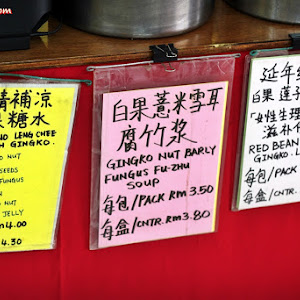 精補凉
糖水
LENG CHEE
GINGKO.
NUT
SEEDS
FUNGUS
NUT
JELLY
4.00
4.30
白果薏米雪耳
腐竹浆
GINGKO NUT BARLY
FUNGUS FU-ZHU
SOUP
每包/PACK RM 3.50
每盒/CNTR. RM 3.80
延年
白果 莲子
"女性生理
滋补
RED BEAN
GINGKO.
每包/PACK
每盒/CNTR.